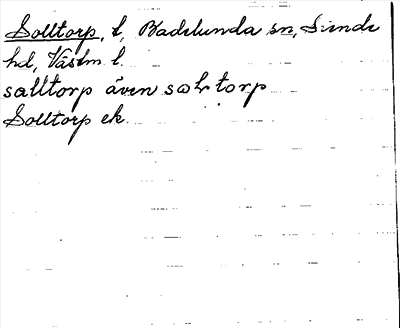 Solltorp, t, Badelunda sn, Siende
hd, Västm l.
salltorp även sωłrtorp
Solltorp ek.